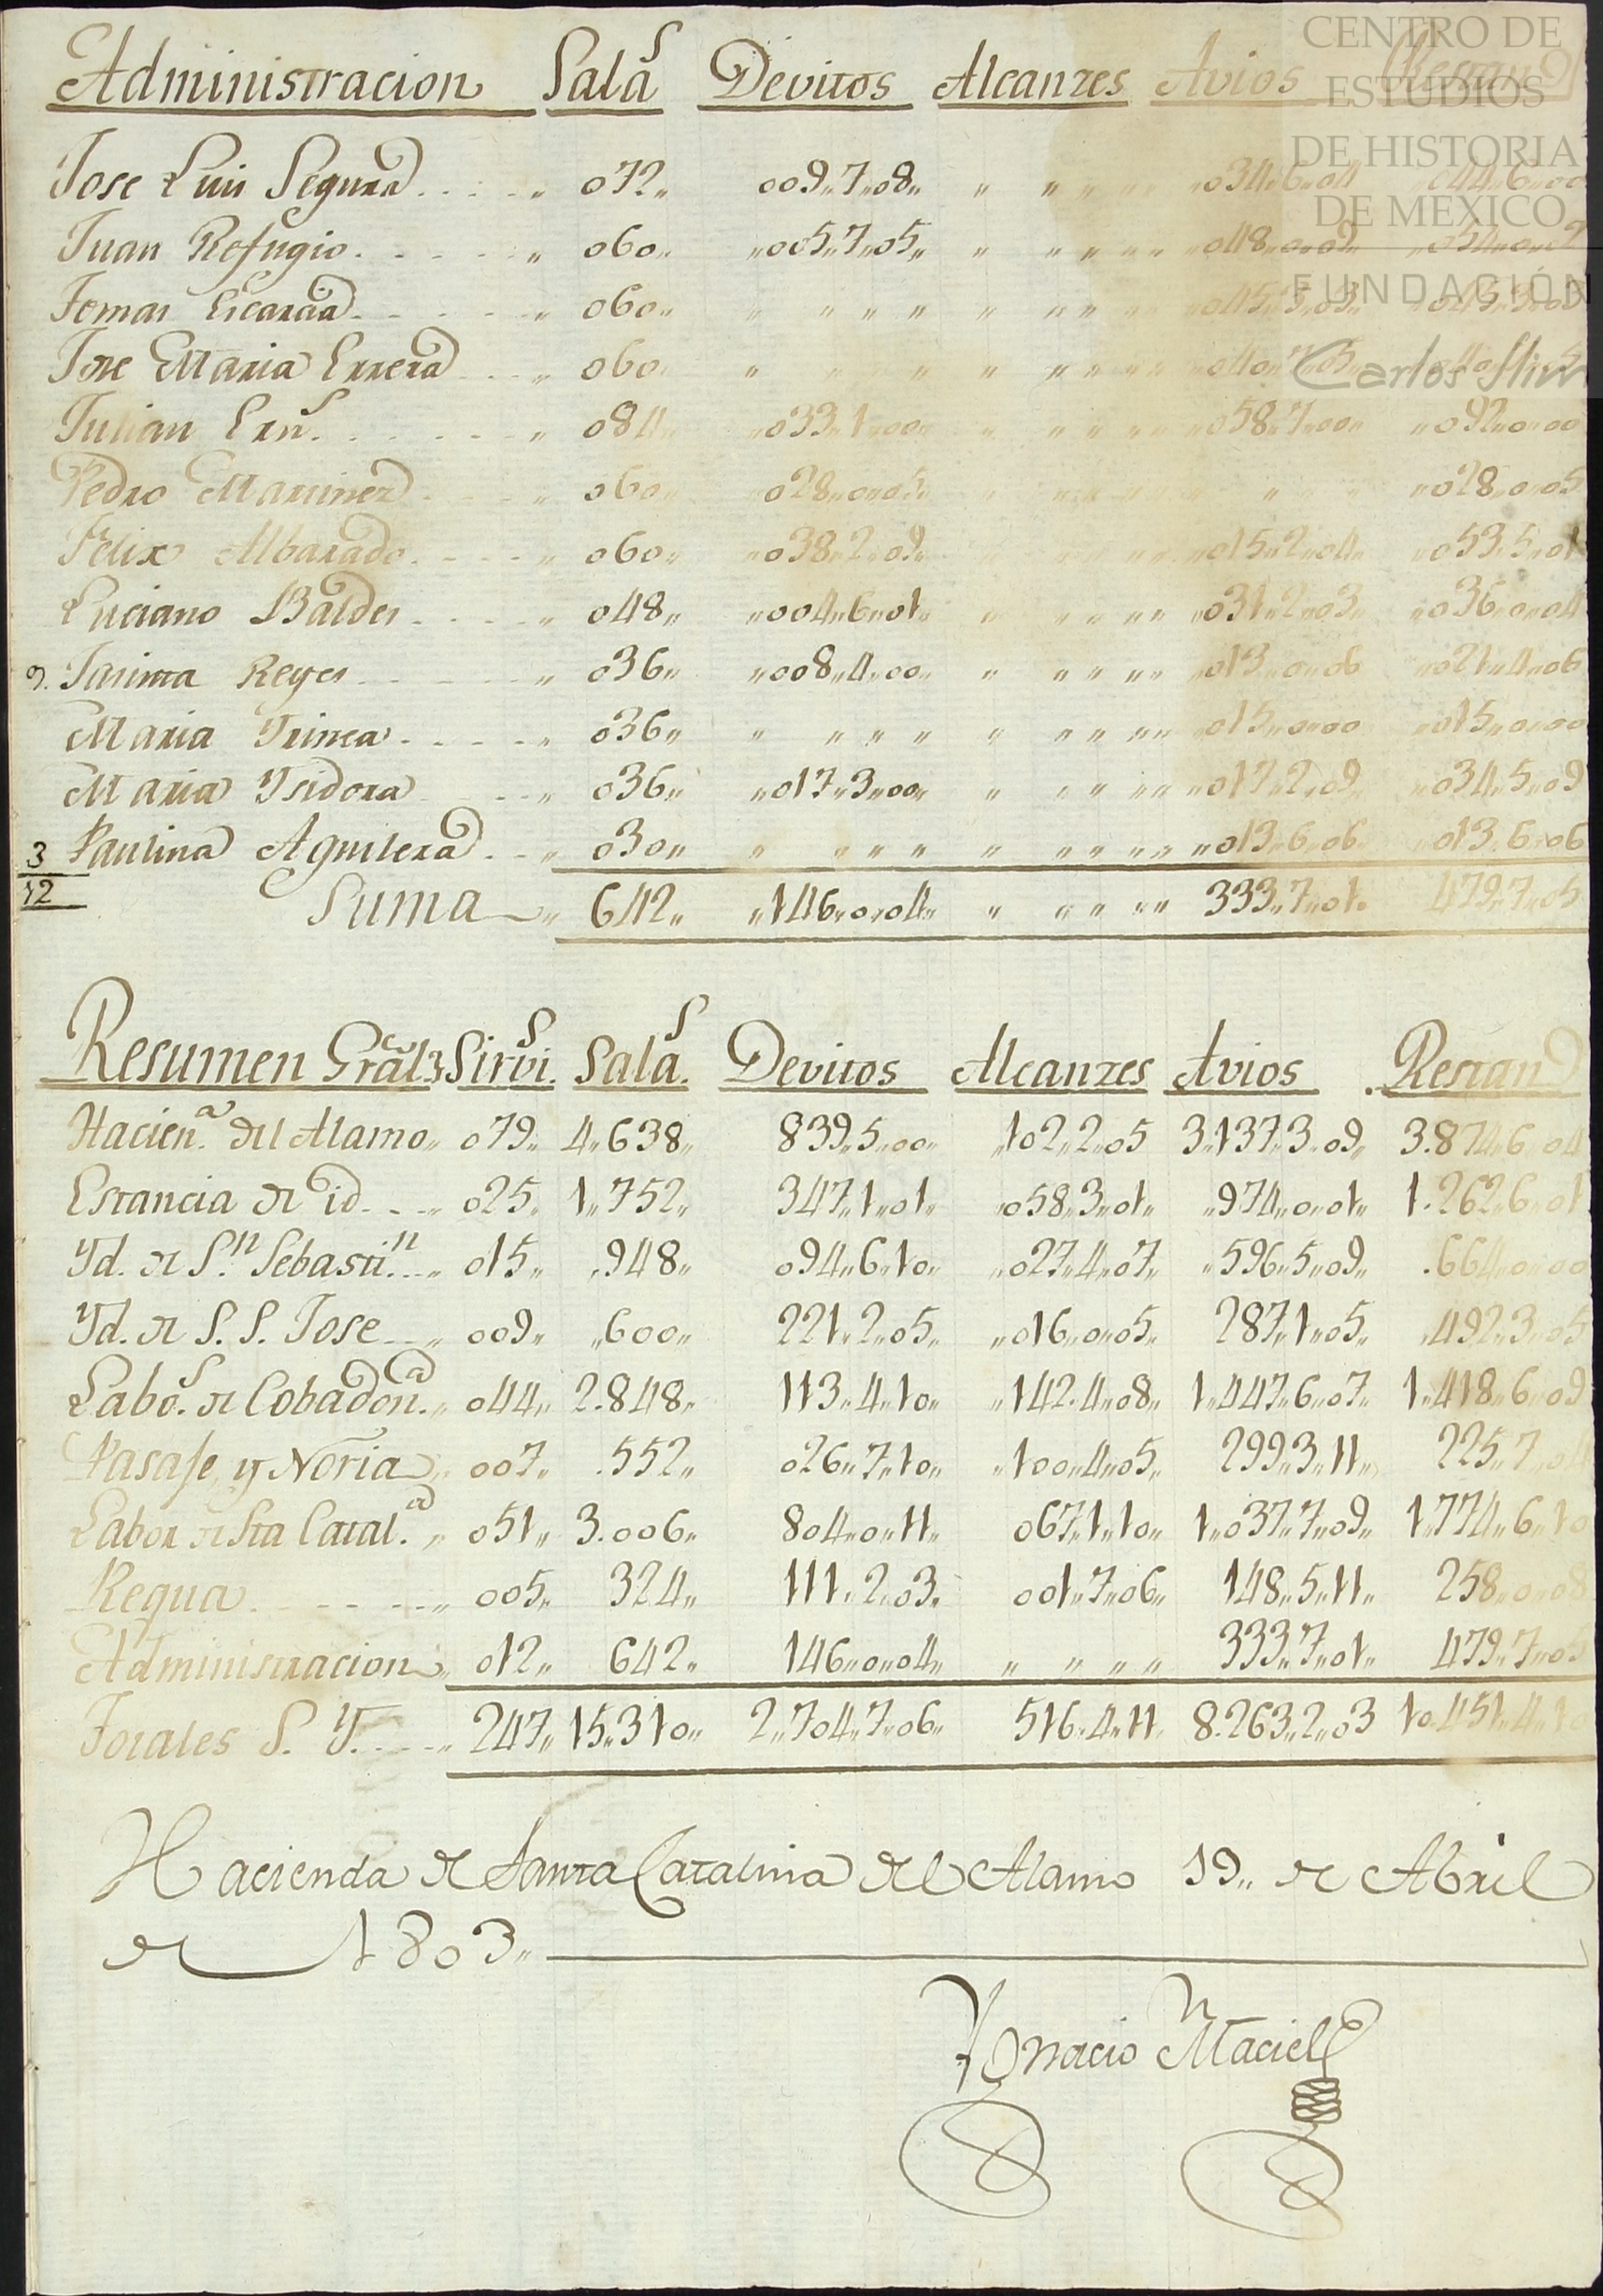 CENTRO DE
ESTUDIOS
DE HISTORIA
DE MEXICO
FUNDACIÓN
Carlos Slim
Administracion Sala.s Devitos Alcanzes Avios Restan
Jose Luis Segura 072,, 009,,7,,08,, ,, ,, ,, ,, ,, 034,,6,,04 ,,044,,6,,00
Juan Refugio ,, 060,, ,,005,,7,,05,, ,, ,, ,, ,, ,, 048,,0,,09 ,,054,,0,,02
Tomas Escarcia ,, 060,, ,, ,, ,, ,, ,, ,, ,, ,, ,, 045,,3,,03
Jose Maria Errera ,, 060 ,, ,, ,, ,, ,, ,, ,, ,,
Julian Ern.s ,, 084,, ,,033,,1,,00,, ,, ,, ,, ,, ,, 058,,7,,00,, ,,092,,0,,00
Pedro Martinez ,, 060,, ,,028,,0,,05,, ,, ,, ,, ,, ,,028,,0,,05
Felix Albarado ,, 060,, ,,038,,2,,09,, ,, ,, ,, ,,015,,2,,04,, ,,053,,5,,01
Luciano Baldes ,, 048,, ,,004,,6,,01,, ,, ,, ,, ,, ,,031,,2,,03,, ,,036,,0,,04
9. Jasinta Reyes ,, 036,, ,,008,,4,,00,, ,, ,, ,, ,, ,,013,,0,,06 ,,021,,4,,06
Maria Trinea ,, 036,, ,, ,, ,, ,, ,, ,, ,, ,, ,,015,,0,,00 ,,015,,0,,00
Maria Ysidora ,, 036,, ,,017,,3,,00,, ,, ,, ,, ,, ,,017,,2,,09,, ,,034,,5,,09
3 Paulina Aguilera ,, 030,, ,, ,, ,, ,, ,, ,, ,, ,, ,,013,,6,,06 ,,013,,6,,06
12 Suma ,, 642,, ,,146,,0,,04,, ,, ,, ,, ,, 333,,7,,01,, 479,,7,,05
Resumen Gral Sirvi.s Sala.s Devitos Alcanzes Avios Restan
Hacien.a del Alamo,, 079,, 4,,638,, 839,,5,,00,, ,,102,,2,,05 3,,137,,3,,09,, 3.874,,6,,04
Estancia de id ,, 025,, 1,,752,, 347,,1,,01,, ,,058,,3,,01,, ,,974,,0,,01,, 1.262,,6,,01
Yd. de S.n Sebasti.n ,, 015,, ,,948,, 094,,6,,10,, ,,027,,4,,07,, ,,596,,5,,09,, .664,,0,,00
Yd. de S. S. Jose ,, 009,, ,,600,, 221,,2,,05,, ,,016,,0,,05,, 287,,1,,05,, ,,492,,3,,05
Labo.s de Cobadon.a ,, 044,, 2.848,, 113,,4,,10,, ,,142,,4,,08,, 1,,447,,6,,07,, 1,,418,,6,,09
Pasaje y Noria ,, 007,, .552,, 026,,7,,10,, ,,100,,4,,05,, 299,,3,,11,, 225,,7,,04
Labor de Sta Catal.a ,, 051,, 3.006,, 804,,0,,11,, 067,,1,,10,, 1,,037,,7,,09,, 1,,774,,6,,10
Requa ,, 005,, 324,, 111,,2,,03,, 001,,7,,06,, 148,,5,,11,, 258,,0,,08
Administracion ,, 012,, 642,, 146,,0,,04,, ,, ,, ,, ,, 333,,7,,01,, 479,,7,,05
Totales S. Y. ,, 247,, 15,,310,, 2,,704,,7,,06,, 516,,4,,11,, 8.263,,2,,03 10.451,,4,,1
Hacienda de Santa Catalina del Alamo 19,, de Abril
de 1803,,
Ygnacio Maciel